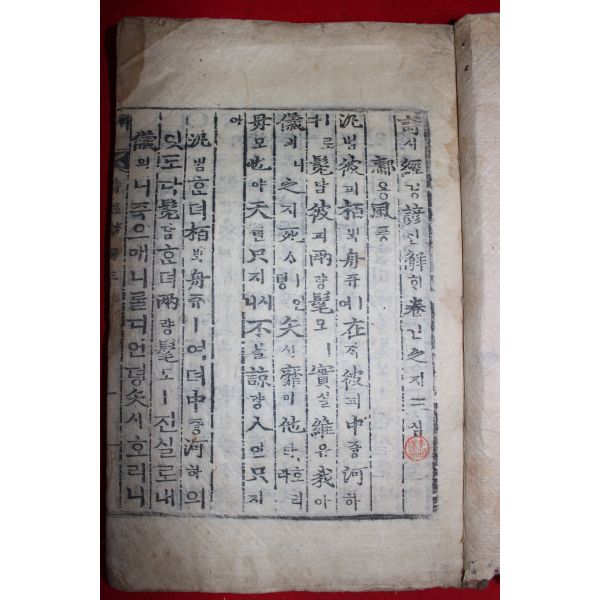 詩시經경諺언解ᄒᆡ卷권之지三삼
鄘용風풍
汎범彼피栢ᄇᆡᆨ舟쥬ㅣ여在ᄌᆡ彼피中즁河하
ㅣ로다髧담彼피兩량髦모ㅣ實실維유我아
儀의니之지死ᄉᆞㅣ언뎡矢시靡미他타호리라
母모也야天텬只지시니不블諒량人인只지
야
汎범ᄒᆞᆫ뎌栢ᄇᆡᆨ舟쥬ㅣ여뎌中즁河하의
잇도다髧담ᄒᆞᆫ뎌兩량髦모ㅣ진실로내
儀의니죽으매니를디언뎡矢시호리니